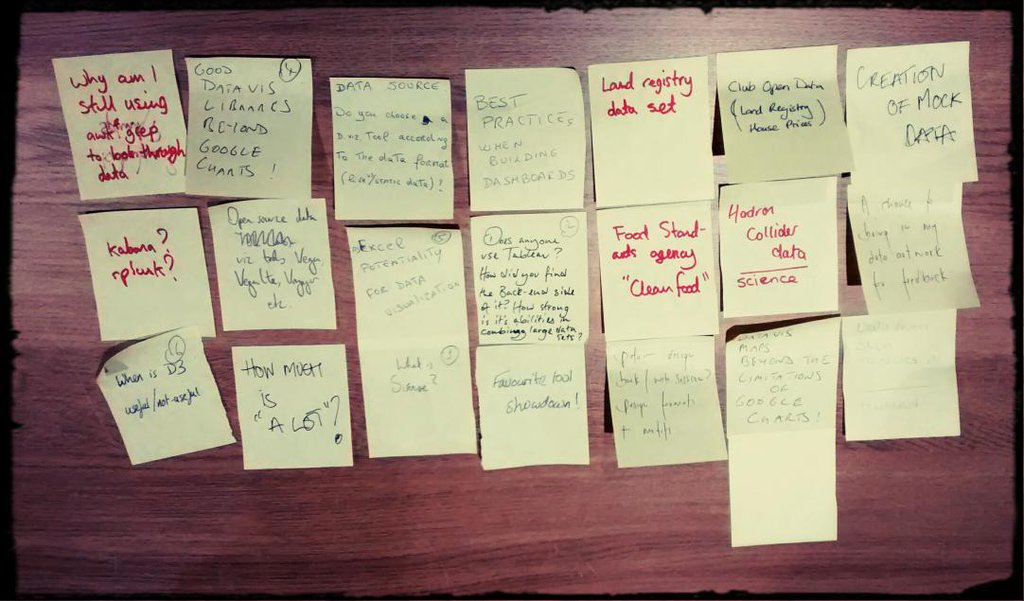 Why am I
still using
awk grep
to look through
data
4
GOOD
DATA VIS
LIBRARIES
BEYOND
GOOGLE
CHARTS!
DATA SOURCE
Do you choose a
Tool according
To The data format
static data)?
BEST
PRACTICES
WHEN
BUILDING
DASHBOARDS
Land registry
data set
Club Open Data
(Land Registry
House Prices)
CREATION
OF MOCK
DATA
kabana?
splunk?
Open source data
viz tools Vega
Vegalite, Voyager
etc.
EXCEL
POTENTIALITY
FOR DATA
VISUALIZATION
Does anyone
use Tableau?
How did you find
the Back-end side
of it? How strong
is it's abilities in
combining large data
sets?
Food Stand-
ards agency
"Clean food"
Hadron
Collider
data
science
A chance to
bring in my
data artwork
for feedback
When is D3
useful/not-useful
HOW MUCH
IS
"A LOT"?
What is
Science?
Favourite tool
showdown!
design
design formats
DATA VIS
MAPS
BEYOND THE
LIMITATIONS
OF
GOOGLE
CHARTS!